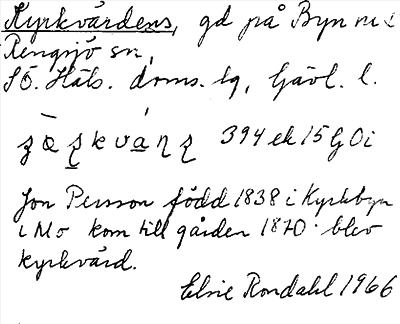 Kyrkvärdens, gd på Byn nr 2
Rengsjö sn,
SÖ. Häls. doms. lg, Gävl. l.
394 ek 15 G Öi
Jon Persson född 1838 i Kyrkbyn
i Mo kom till gården 1870. blev
kyrkvärd.
Elsie Rondahl 1966